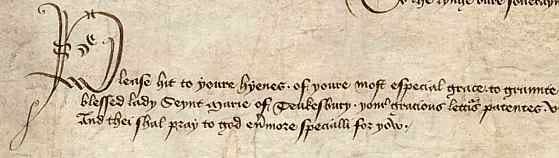 To the kynge oure souerayn
Please hit to youre hyenes . of youre most especial grace . to graunte
blessed lady Seynt Marie of Teukesbury . your gracious lettres patentes .
And thei shal pray to god euermore specialli for yow .